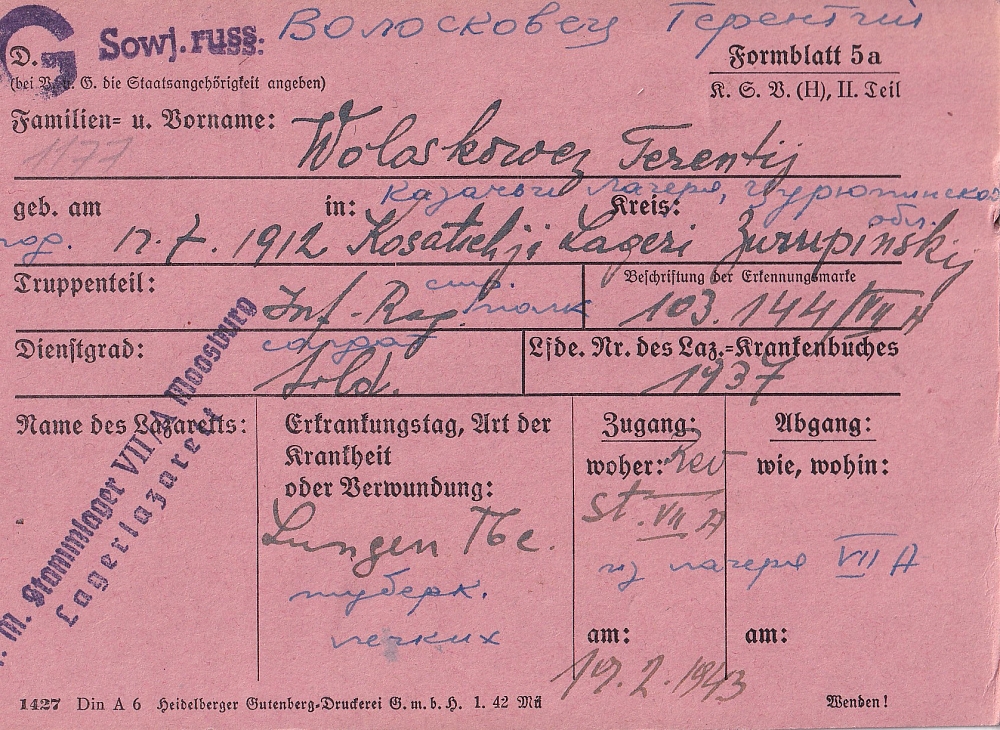 G Sowj. russ. Волосковец Терентий
D.
(bei V. u. G. die Staatsangehörigkeit angeben)
Formblatt 5a
K. S. V. (H), II. Teil
Familien= u. Vorname:
1177
Woloskowez Terentij
казачьи лагеря, Цурюпинской
обл.
geb. am in: Kreis:
год. 17.7. 1912 Kosatschji Lageri Zurupinsky
Truppenteil:
Inf.-Reg.
стр. полк
Beschriftung der Erkennungsmarke
103.144/VII A
Dienstgrad:
солдат
Sold.
Lfde. Nr. des Laz.=Krankenbuches
1937
Name des Lazaretts:
M. Stammlager VII/A Moosburg
Lagerlazarett
Erkrankungstag, Art der
Krankheit
oder Verwundung:
Lungen Tbc.
туберк.
легких
Zugang:
woher: Rev
St. VII A
из лагеря VII A
am:
17.2.1943
Abgang:
wie, wohin:
am:
1427 Din A 6 Heidelberger Gutenberg-Druckerei G. m. b. H. 1. 42 Mü
Wenden!